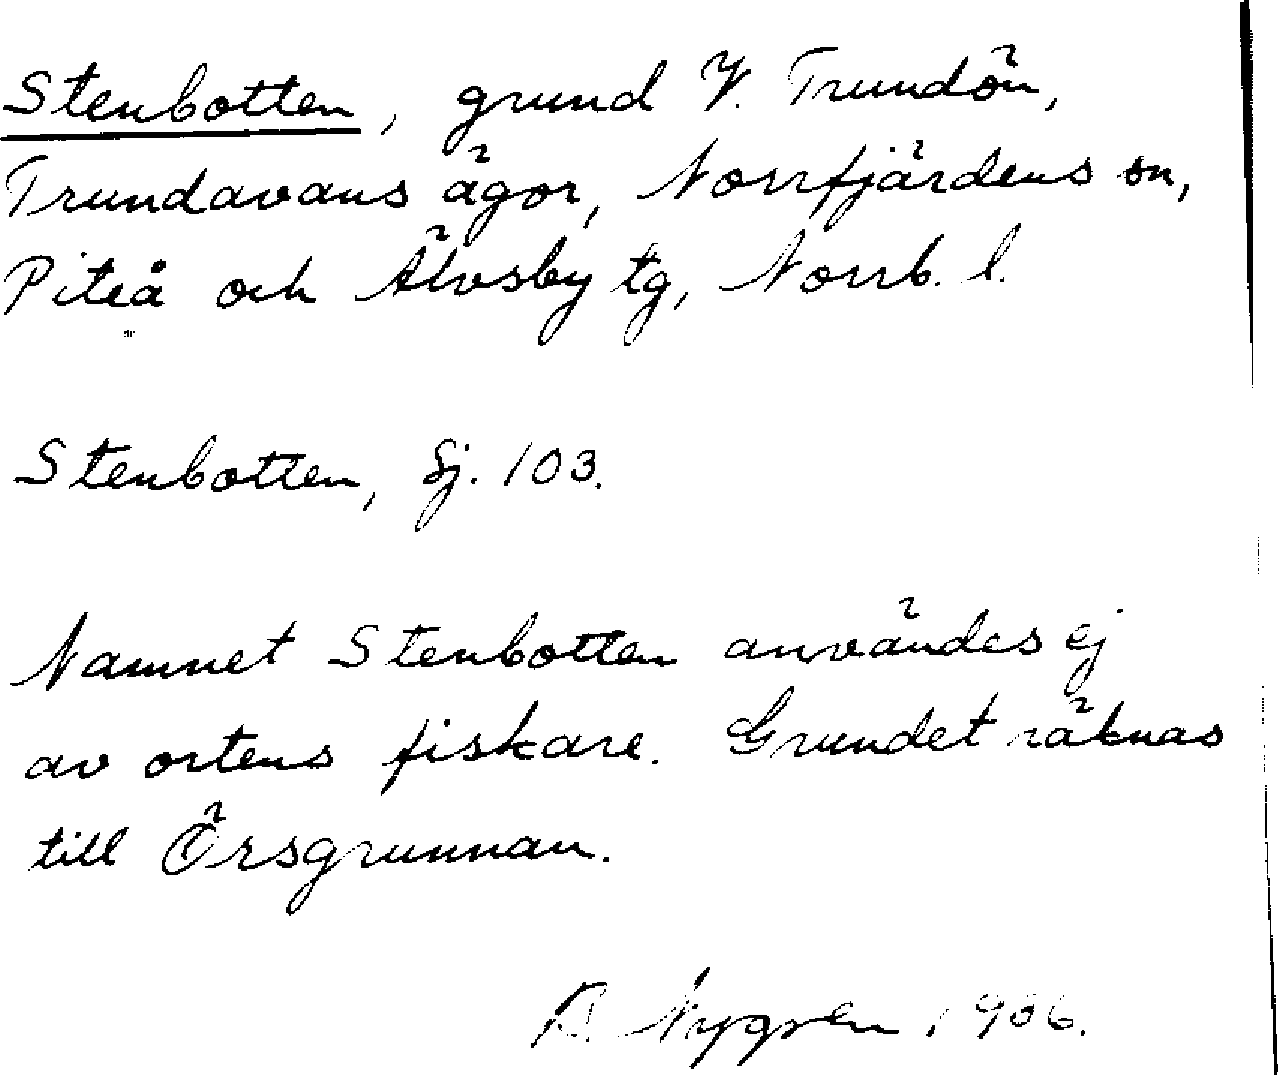 Stenbotten, grund V. Trundön,
Trundavans ägor, Norrfjärdens sn,
Piteå och Älvsby tg, Norrb. l.
Stenbotten, Sj. 103.
Namnet Stenbotten användes ej
av ortens fiskare. Grundet räknas
till Örsgrunnan.
B. Nygren 1936.